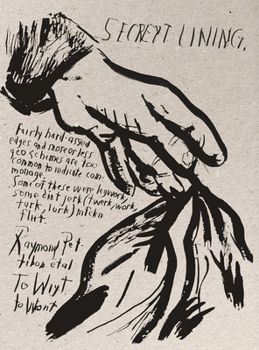 SECRET LINING.
Fairly hard-assed
edges and more or less
geo schemes are too
common to indicate com-
monage.
Some of these were legwork,
some dint jerk (twerk, work,
turk, lurk)
flint.
Raymond Pet-
tibon etal
To Wit
to Wont